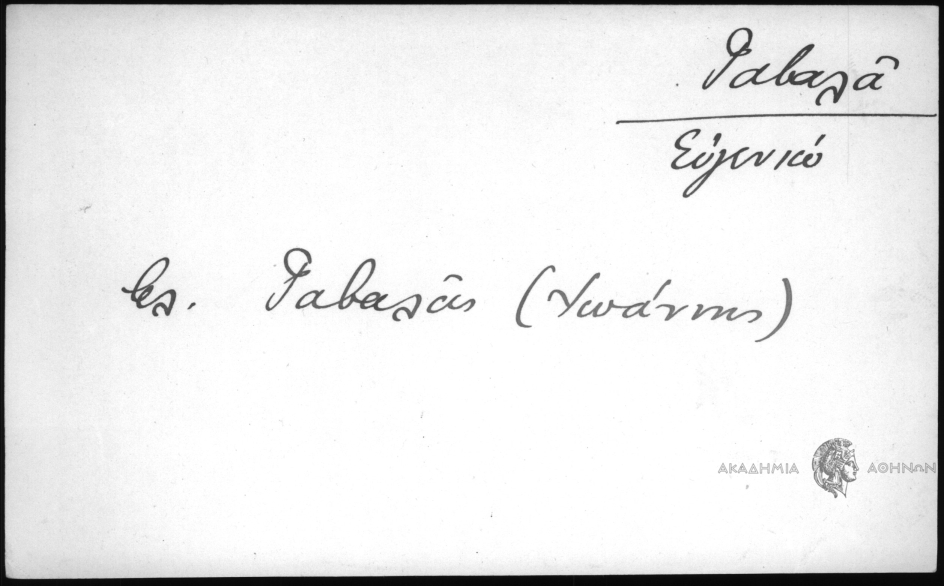 Γαβαλᾶ
Εὐγενικό
βλ. Γαβαλᾶς (Ἰωάννης)
ΑΚΑΔΗΜΙΑ ΑΘΗΝΩΝ